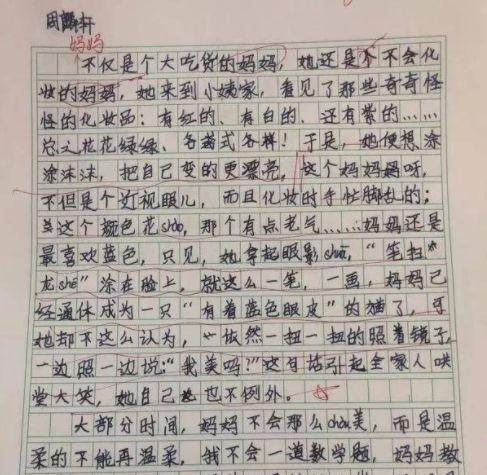 周 轩
妈妈
不仅是个大吃货的妈妈，她还是个不会化
妆的妈妈，她来到小姨家，看见了那些奇奇怪
怪的化妆品：有红的、有白的、还有紫的……
总之花花绿绿、各式各样！于是，她便想涂
涂沫沫，把自己变的更漂亮，这个妈妈呀，
不但是个近视眼儿，而且化妆时手忙脚乱的；
这个颜色花shào，那个有点老气……妈妈还是
最喜欢蓝色，只见，她拿起眼影shuā，“笔扫
龙shé”涂在脸上，就这么一笔，一画，妈妈已
经通体成为一只“有着蓝色眼皮”的猫了，可
她却不这么认为，依然一扭一扭的照着镜子，
一边照一边说：“我美吗？”这句话引起全家人哄
堂大笑，她自己也不例外。
大部分时间，妈妈不会那么chòu美，而是温
柔的不能再温柔，我不会一道数学题，妈妈教